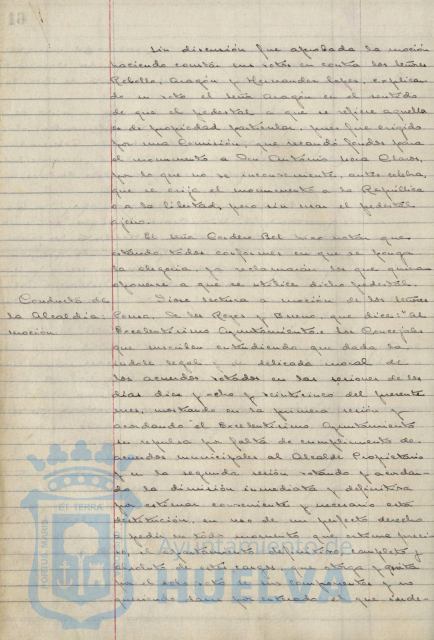 Sin discusión fue aprobada la moción
haciendo constar sus votos en contra los señores
Rebollo, Aragón y Hernandez Lopez, explican-
do su voto el señor Aragón en el sentido
de que el pedestal a que se refiere aquella
es de propiedad particular, pues fue erigido
por una Comisión, que recaudó fondos para
el monumento a San Antonio Maria Claret,
por lo que no se inconveniente, antes celebra,
que se erija el monumento a la República
o a la libertad, pero sin usar el pedestal
ajeno.
El señor Cordero Bel hizo notar que
estando todos conformes en que se ponga
la alegoria, ya reclamarán los que quieran
oponerse a que se utilice dicho pedestal.
Conducta de
la Alcaldia:
moción
Diose lectura a moción de los señores
de los Reyes y Bueno, que dice: "Al
Excelentísimo Ayuntamiento. Los Concejales
que suscriben entendiendo que dada la
indole legal y delicada moral de
los acuerdos votados en las sesiones de los
dias diez y ocho y veinticinco del presente
mes, mostrando en la primera sesión y
acordando el Excelentísimo Ayuntamiento
su repulsa por falta de cumplimiento de
acuerdos municipales al Alcalde Propietario
y en la segunda sesión votando y acordan-
do la dimisión inmediata y definitiva
por estimar conveniente y necesario esta
destitución, en uso de un perfecto derecho
a pedir en todo momento que estime preci-
so, el apartamiento definitivo completo y
absoluto de estos cargos, que otorga y quita
por el voto de sus componentes y no
queriendo darse por enterado el que inde-
PORTUS MARIS
ET TERRÆ
Ayuntamiento de
HUELVA